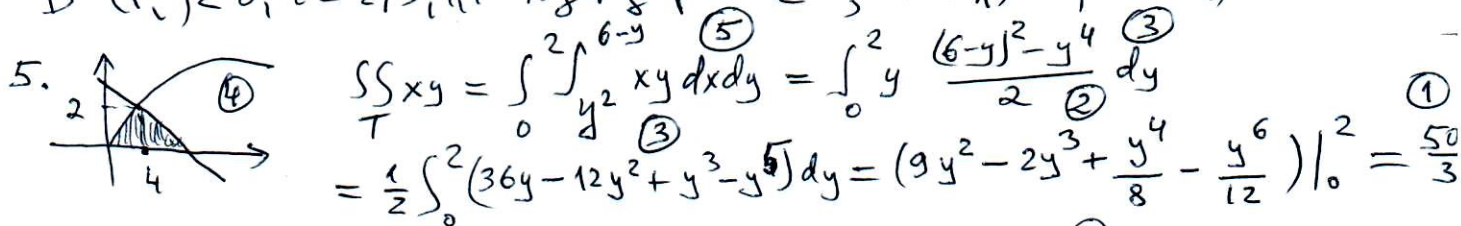 5. 2 4 ④ ∬_T xy = ∫_0^2 ∫_{y^2}^{6-y} xy dxdy ⑤ = ∫_0^2 y ((6-y)^2 - y^4)/2 dy ③ ②
③ = 1/2 ∫_0^2 (36y - 12y^2 + y^3 - y^5) dy = (9y^2 - 2y^3 + y^4/8 - y^6/12)|_0^2 = 50/3 ①